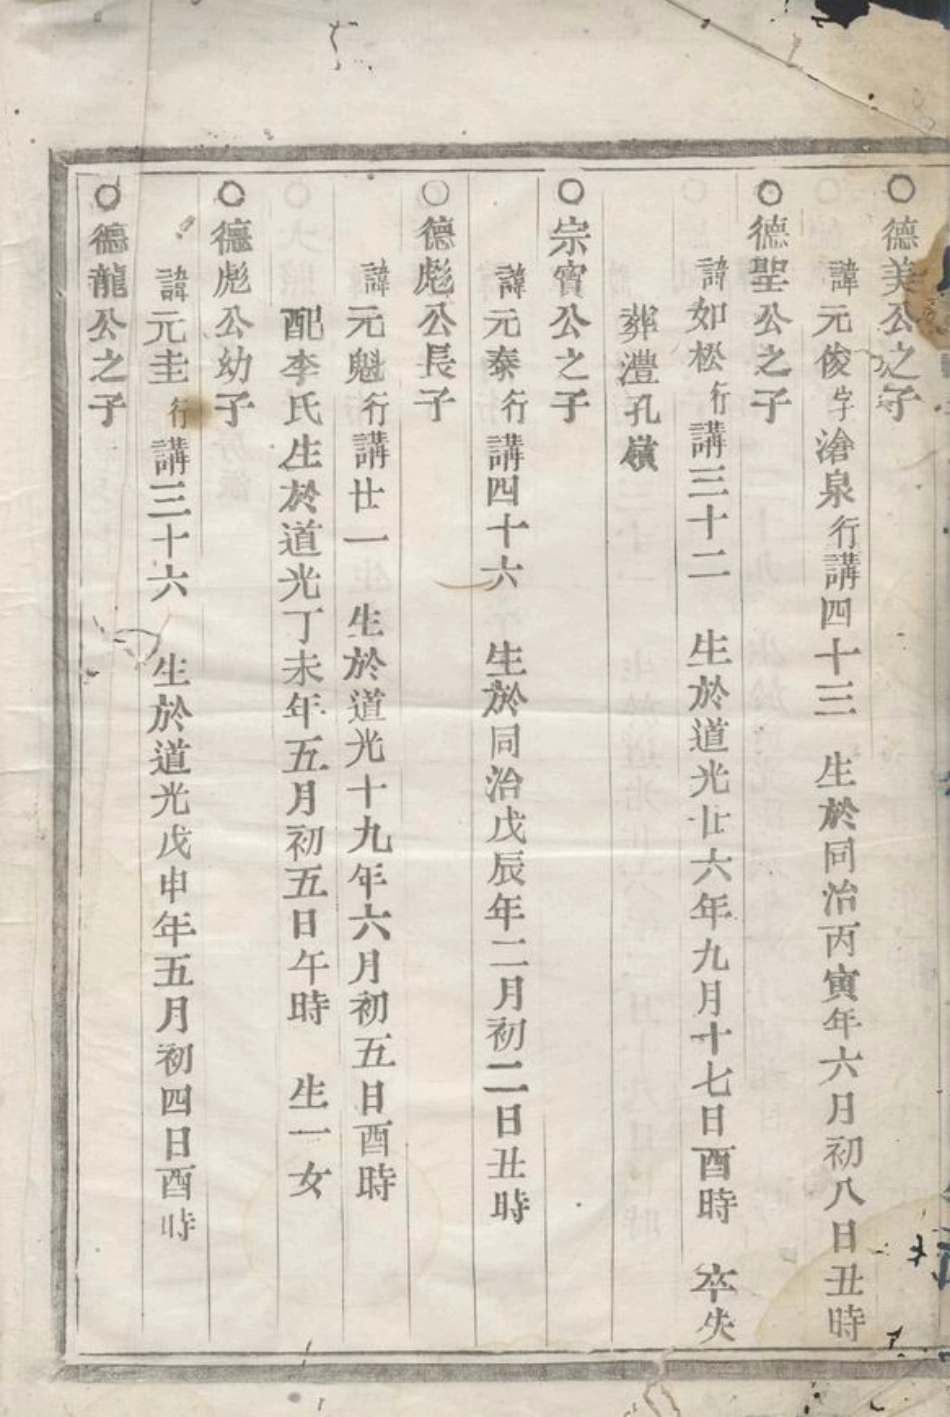 ○德美公之子
諱元俊字滄泉行講四十三 生於同治丙寅年六月初八日丑時
○德聖公之子
諱如松行講三十二 生於道光廿六年九月十七日酉時 卒失
葬灃孔嶺
○宗寳公之子
諱元泰行講四十六 生於同治戊辰年二月初二日丑時
○德彪公長子
諱元魁行講廿一 生於道光十九年六月初五日酉時
配李氏生於道光丁未年五月初五日午時 生一女
○德彪公幼子
諱元圭行講三十六 生於道光戊申年五月初四日酉時
○德龍公之子